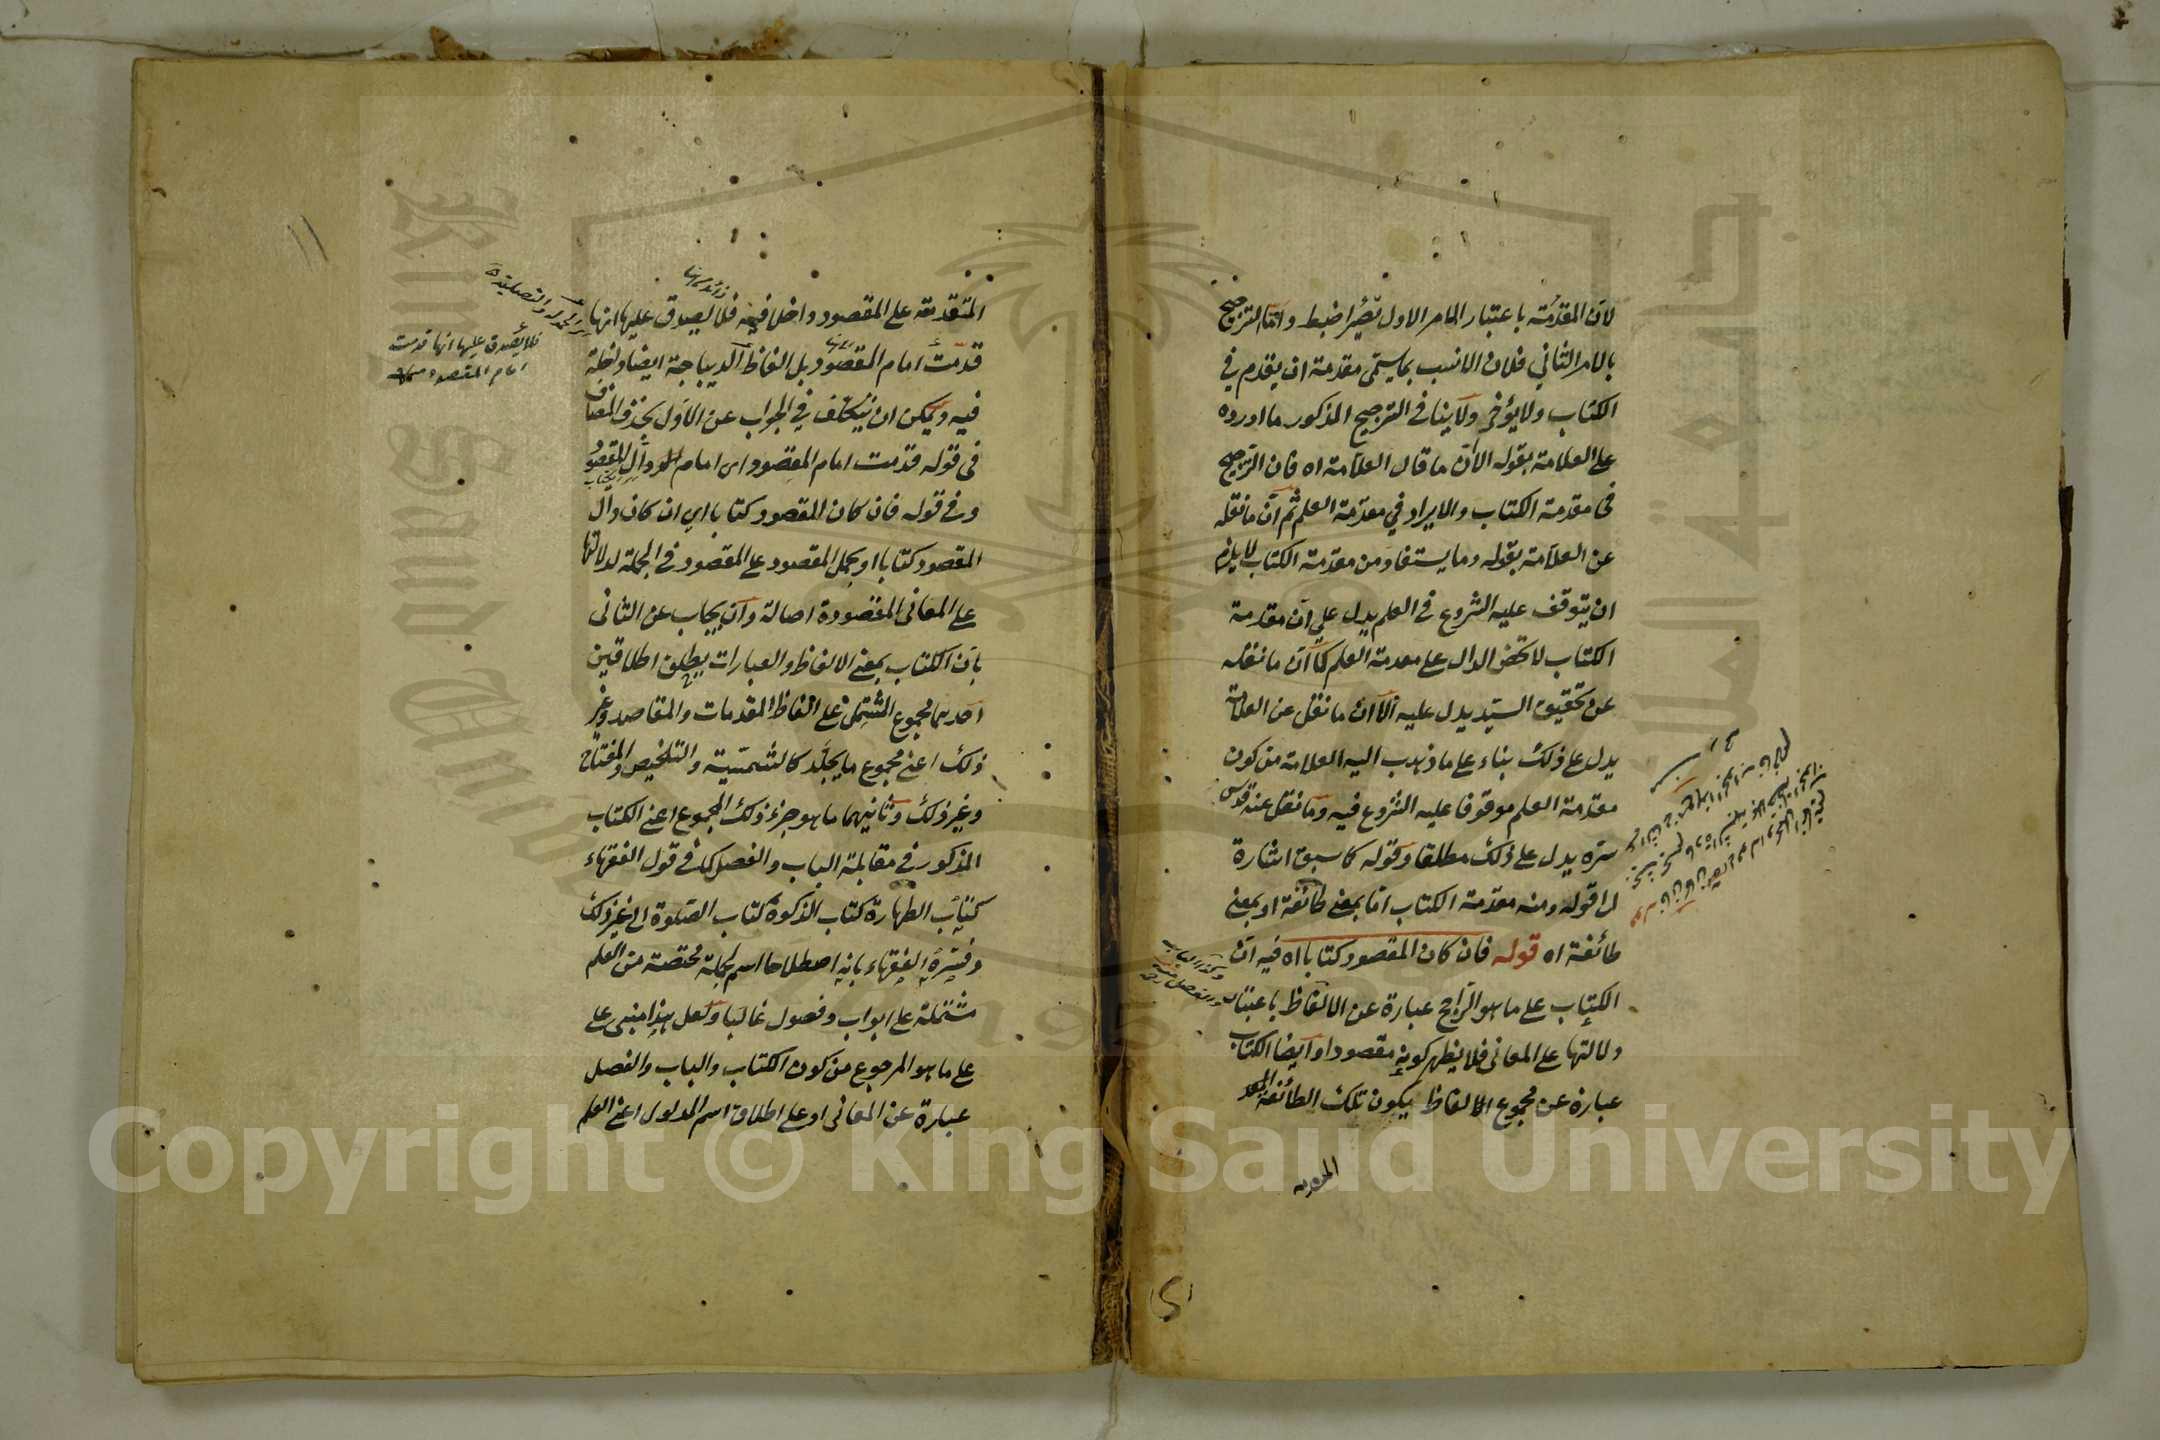 لان المقدمة باعتبار الامر الاول تصير اضبط واما الترجيح
بالامر الثاني فلان الانسب بما يسمى مقدمة ان يقدم في
الكتاب ولا يؤخر ولا ينافي الترجيح المذكور ما اورده
على العلامة بقوله الا ان ما قال العلامة اه فان الترجيح
في مقدمة الكتاب والايراد في مقدمة العلم ثم ان ما نقله
عن العلامة بقوله وما يستفاد من مقدمة الكتاب لا يلزم
ان يتوقف عليه الشروع في العلم يدل على ان مقدمة
الكتاب لا تخص الدال على مقدمة العلم كما ان ما نقله
عن تحقيق السيد يدل عليه الا ان ما نقل عن العلامة
يدل على ذلك بناء على ما ذهب اليه العلامة من كون
مقدمة العلم موقوفا عليه الشروع فيه وما نقل عنه قدس
سره يدل على ذلك مطلقا وقوله كما سبق اشارة
الى قوله ومنه مقدمة الكتاب اما بمعنى طائفة او بمعنى
طائفة اه قوله فان كان المقصود كتابا اه فيه ان
الكتاب على ما هو الراجح عبارة عن الالفاظ باعتبار
دلالتها على المعاني فلا يظهر كونه مقصودا وايضا الكتاب
عبارة عن مجموع الالفاظ يكون تلك الطائفة
وكذا الباب
والفصل منه
المتقدمة على المقصود داخلا فيه فلا يصدق عليها انها
قدمت امام المقصود بل الفاظ الديباجة ايضا داخلة
فيه ويمكن ان يتكلف في الجواب عن الاول بحذف المضاف
في قوله قدمت امام المقصود اى امام دال المقصود
وفي قوله فان كان المقصود كتابا اي ان كان دال
المقصود كتابا او بحمل المقصود على المقصود في الجملة لدلالتها
على المعاني المقصودة اصالة وان يجاب عن الثاني
بان الكتاب بمعنى الالفاظ والعبارات يطلق اطلاقين
احدهما مجموع المشتمل على الفاظ المقدمات والمقاصد وغير
ذلك اعني مجموع ما يجلد كالشمسية والتلخيص والمفتاح
وغير ذلك وثانيهما ما هو جزء ذلك المجموع اعني الكتاب
المذكور في مقابلة الباب والفصل كما في قول الفقهاء
كتاب الطهارة كتاب الزكوة كتاب الصلوة الى غير ذلك
وفسره الفقهاء بانه اصطلاحا اسم لجملة مختصة من العلم
مشتملة على ابواب وفصول غالبا ولعل هذا مبنى على
على ما هو المرجوع من كون الكتاب والباب والفصل
عبارة عن المعاني او على اطلاق اسم المدلول اعني العلم
فلا يصدق عليها انها قدمت
امام المقصود
Copyright © King Saud University